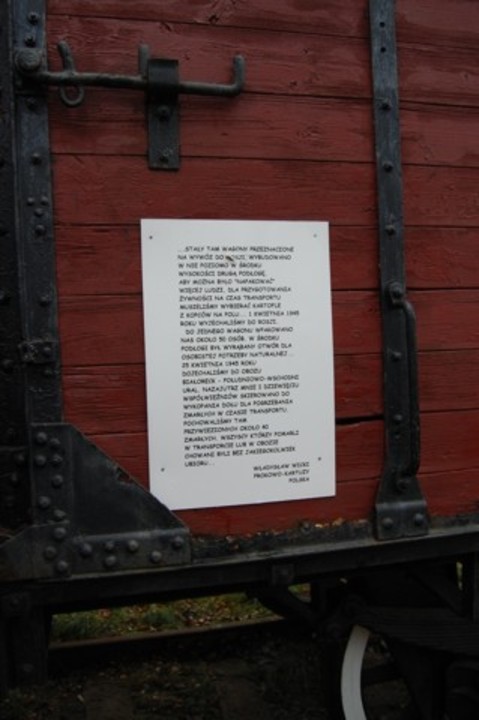 ...STAŁY TAM WAGONY PRZEZNACZONE
NA WYWÓZ DO ROSJI. WYBUDOWANO
W NIE POZIOMO W ŚRODKU
WYSOKOŚCI DRUGĄ PODŁOGĘ,
ABY MOŻNA BYŁO "NAPAKOWAĆ"
WIĘCEJ LUDZI. DLA PRZYGOTOWANIA
ŻYWNOŚCI NA CZAS TRANSPORTU
MUSIELIŚMY WYBIERAĆ KARTOFLE
Z KOPCÓW NA POLU... 1 KWIETNIA 1945
ROKU WYJECHALIŚMY DO ROSJI.
DO JEDNEGO WAGONU WPAKOWANO
NAS OKOŁO 50 OSÓB. W ŚRODKU
PODŁOGI BYŁ WYRĄBANY OTWÓR DLA
OSOBISTEJ POTRZEBY NATURALNEJ...
25 KWIETNIA 1945 ROKU
DOJECHALIŚMY DO OBOZU
BIAŁORIECK - POŁUDNIOWO-WSCHODNI
URAL. NAZAJUTRZ MNIE I DZIEWIĘCIU
WSPÓŁWIĘŹNIÓW SKIEROWANO DO
WYKOPANIA DOŁU DLA POGRZEBANIA
ZMARŁYCH W CZASIE TRANSPORTU.
POCHOWALIŚMY TAM
PRZYWIEZIONYCH OKOŁO 40
ZMARŁYCH. WSZYSCY KTÓRZY POMARLI
W TRANSPORCIE LUB W OBOZIE
CHOWANI BYLI BEZ JAKIEGOKOLWIEK
UBIORU...
WŁADYSŁAW
PROKOWO-KARTUZY
POLSKA